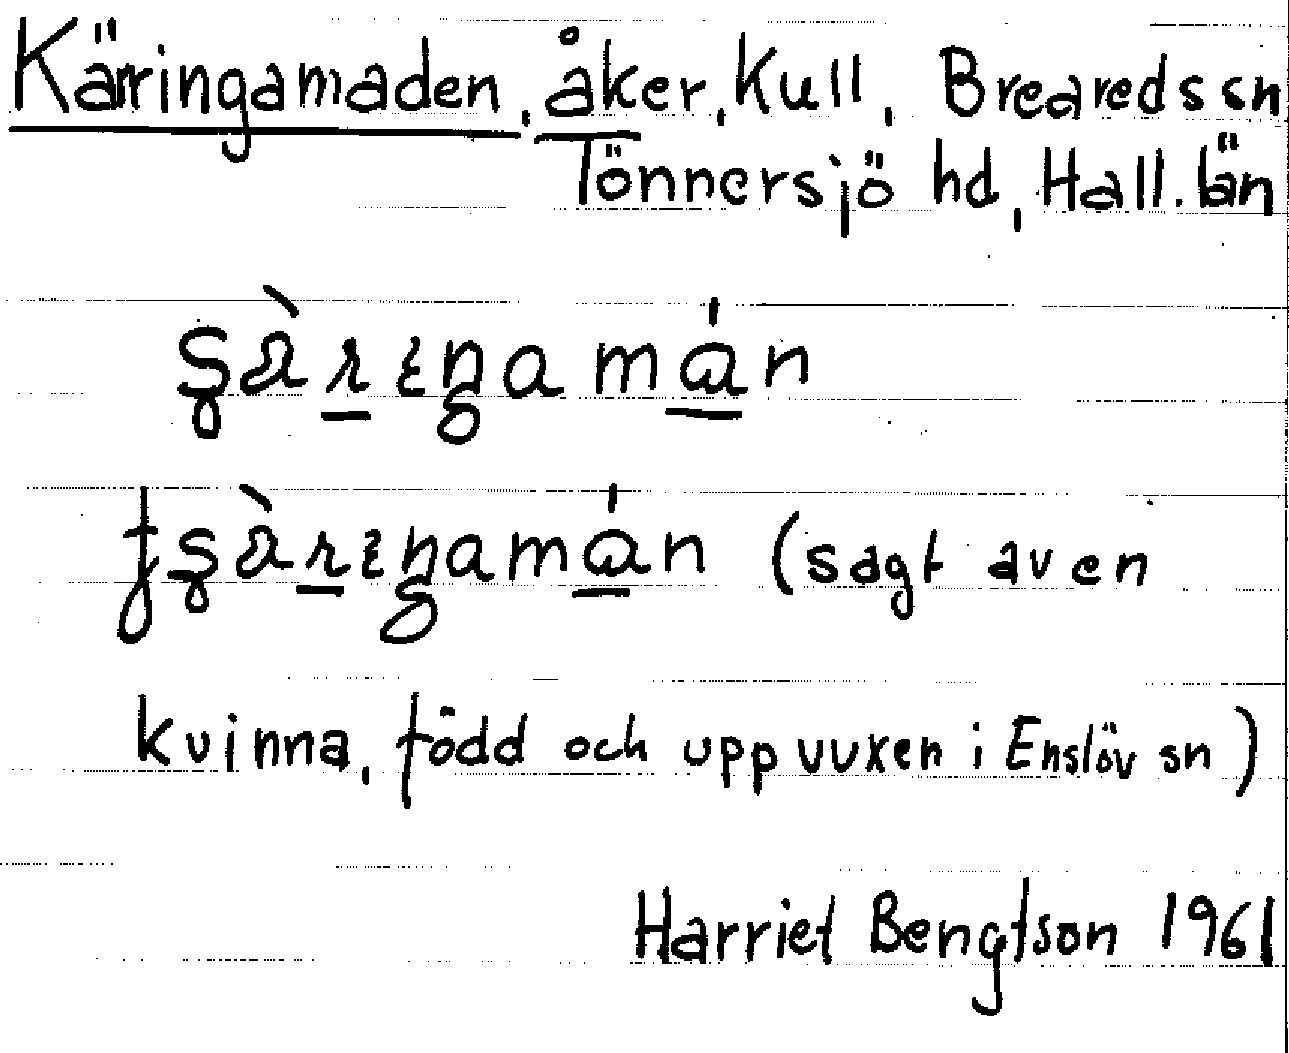 Käringamaden, åker, Kull, Breareds sn
Tönnersjö hd, Hall. län
(sagt av en
kvinna, född och uppvuxen i Enslöv sn)
Harriet Bengtson 1961